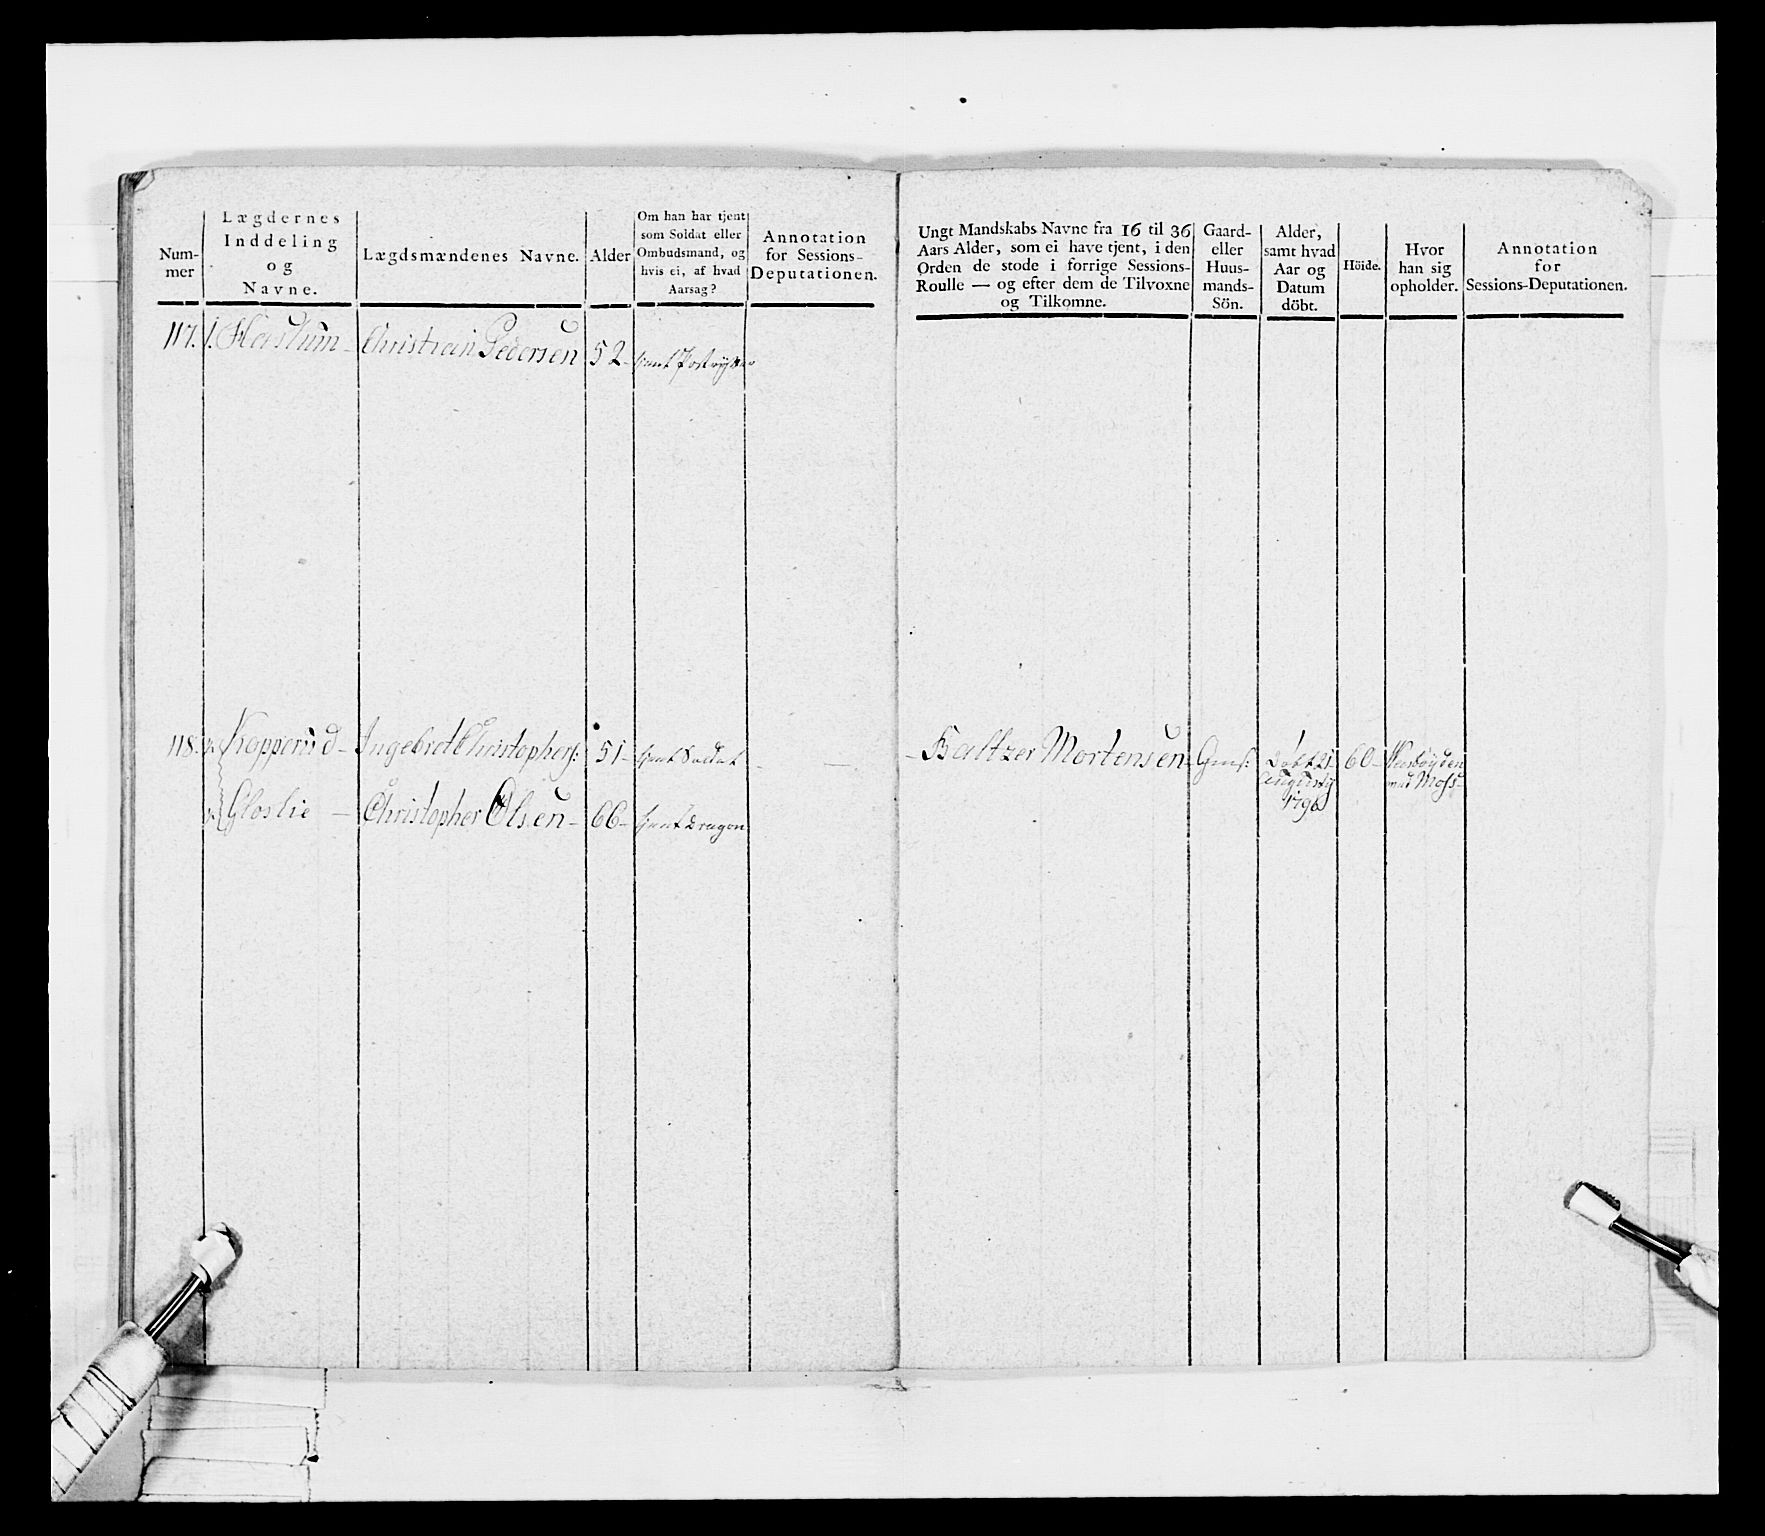 Num-
mer
Lægdernes
Inddeling
og
Navne.
Lægdsmændenes Navne.
Alder
Om han har tjent
som Soldat eller
Ombudsmand, og
hvis ei, af hvad
Aarsag?
Annotation
for Sessions-
Deputationen.
117. 1. Haslum - Christian Pedersen 52-
118. Kopperud - Ingebret Christophers: 51- tient Soldat -
Gloslie - Christopher Olsen - 66- tient Dragon
Ungt Mandskabs Navne fra 16 til 36
Aars Alder, som ei have tjent, i den
Orden de stode i forrige Sessions-
Roulle — og efter dem de Tilvoxne
og Tilkomne.
Gaard-
eller
Huus-
mands-
Sön.
Alder,
samt hvad
Aar og
Datum
döbt.
Höide.
Hvor
han sig
opholder.
Annotation
for
Sessions-Deputationen.
- Baltzer Mortensen - Gms:
Döbt 21
Augusty
1796
60-
ved Moss-